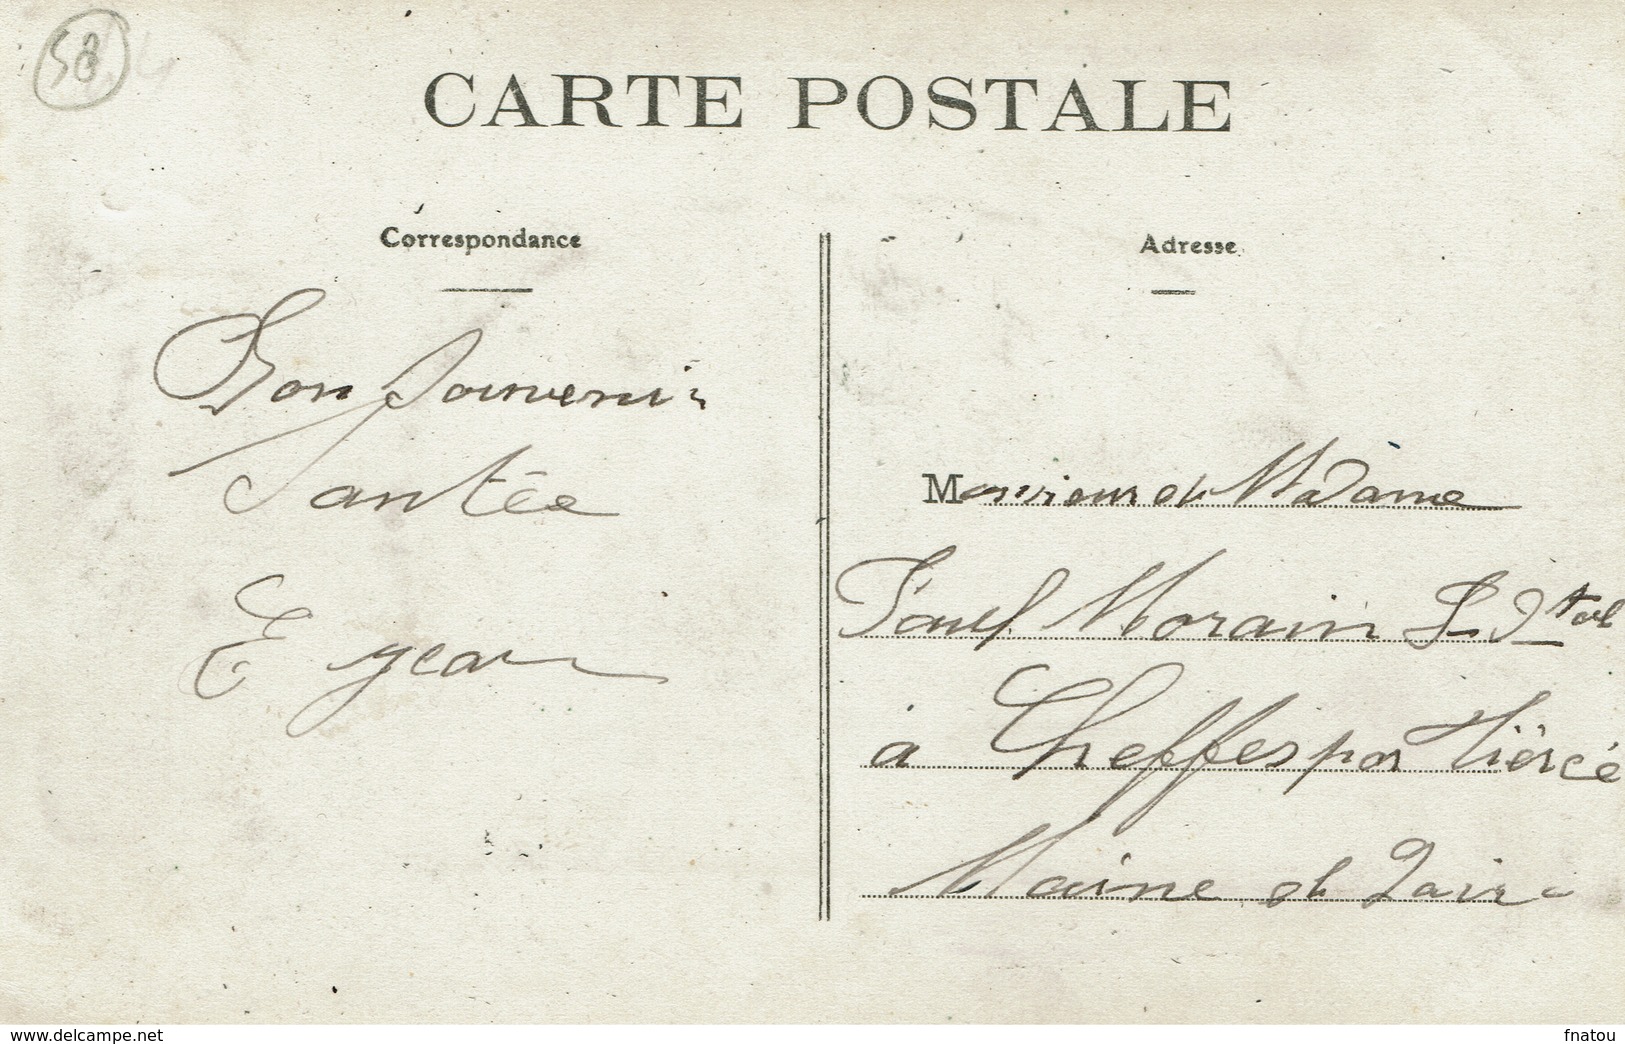 58
CARTE POSTALE
Correspondance
Bon Souvenir
Santée
E Jean
Adresse
Monsieur et Madame
Paul Morain
à Cheffes par Tiércé
Maine et Loire
www.delcampe.net
fnatou